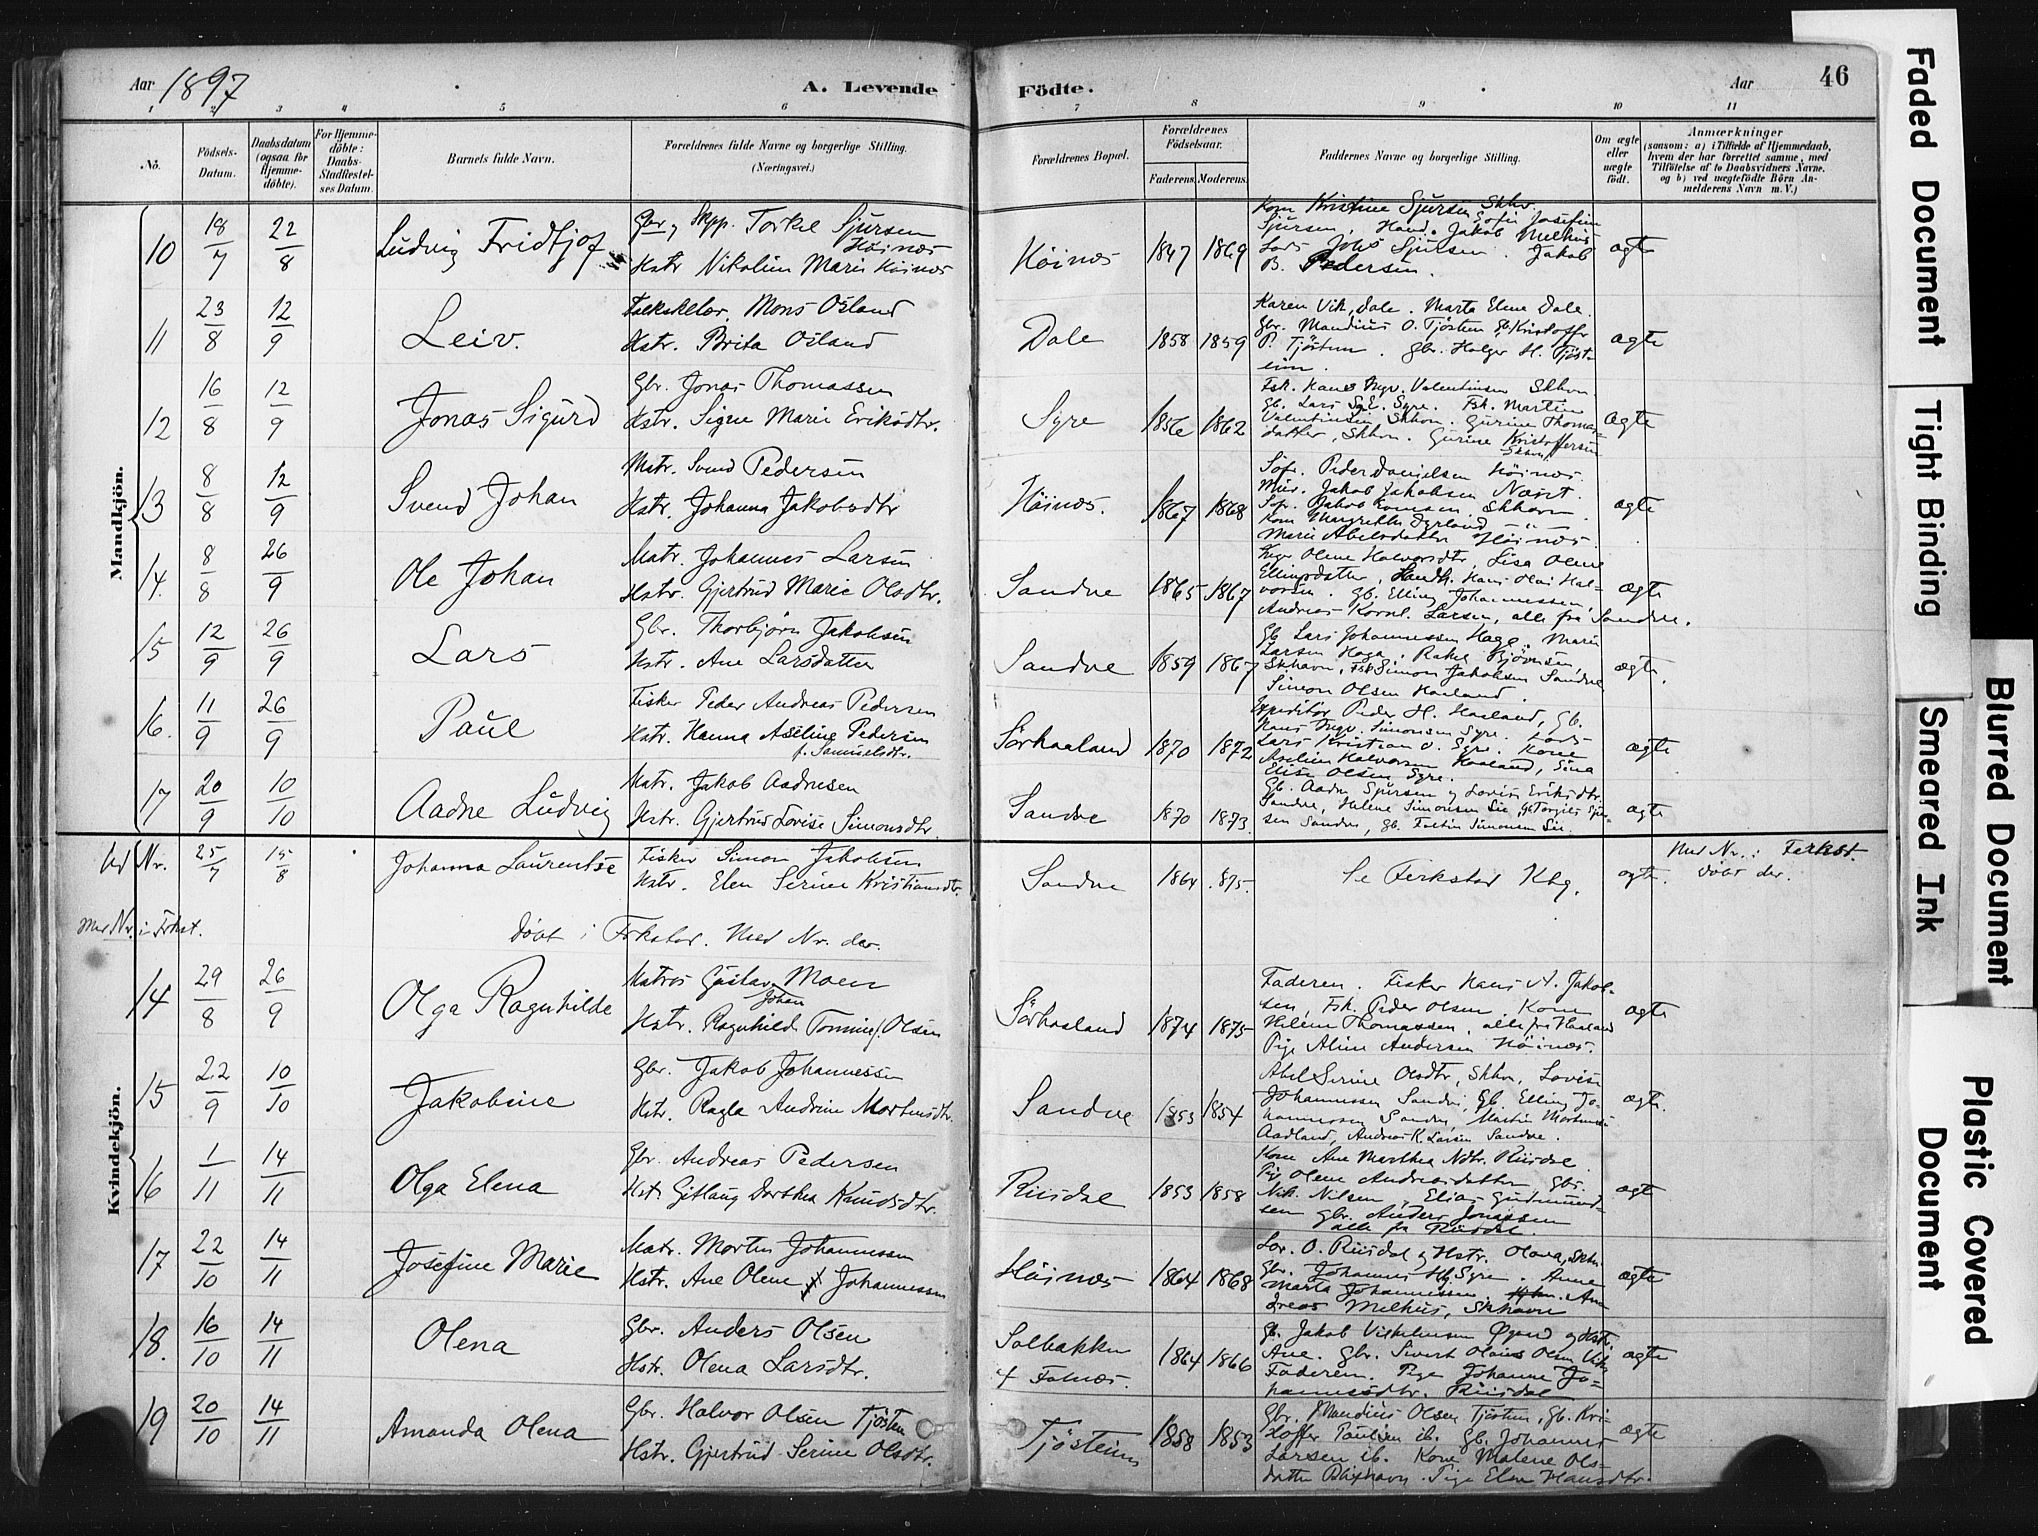 Aar 1897 A. Levende Födte. Aar 46
1 2 3 4 5 6 7 8 9 10 11
No. Födsels-Datum. Daabsdatum (ogsaa for Hjemme-döbte). For Hjemme-döbte: Daabs-Stadfæstelses Datum. Barnets fulde Navn. Forældrenes fulde Navne og borgerlige Stilling. (Næringsvei.) Forældrenes Bopæl. Forældrenes Födselsaar. Faderens. Moderens. Faddernes Navne og borgerlige Stilling. Om ægte eller uægte födt. Anmærkninger (saasom: a) i Tilfælde af Hjemmedaab, hvem der har forrettet samme, med Tilföielse af to Daabsvidners Navne, og b) ved uægtefödte Börn Anmelderens Navn m. V.)
Mandkjön.
10 18/7 22/8 Ludvig Fridtjof Gbr. og Skpp. Torkel Sjursen Höinæs
Hstr Nikoline Marie Höinæs Höinæs 1847 1869 ægte
Kone Kristine Sjursen Skhv.
Jakob Melhus
Lods Johs Sjursen. Jakob
B. Pedersen.
11 23/8 12/9 Leiv. Mons Osland
Hstr. Brita Osland Dale 1858 1859 ægte
Karen Vik, Dale. Marta Elene Dale.
Gbr. Mandius O. Tjöstem Gb. Kristoffer
P. Tjöstem. Gbr. Holger H. Tjöst-
eim.
12 16/8 12/9 Jonas Sigurd Gbr. Jonas Thomassen
Hstr. Signe Marie Eriksdtr. Syre 1856 1862 ægte
Fsk. Hans Ingv. Valentinsen Skhvn.
Gb. Lars Syre. Fsk. Martin
Valentinsen Skhvn. Gurine Thomas-
datter, Skhvn. Gurine Kristoffersen
Skhvn.
13 8/8 12/9 Svend Johan Mstr. Svend Pedersen
Hstr. Johanna Jakobsdtr Höinæs. 1867 1868 ægte
Peder Danielsen Höinæs.
Mur. Jakob Jakobsen
Marie Abelsdatter Höinæs.
14. 8/8 26/9 Ole Johan Matr. Johannes Larsen
Hstr. Gjertrud Marie Olsdtr. Sandve 1865 1867 ægte
Olene Halvorsdtr, Lisa Olene
Ellingsdatter, Hans Olai Hal-
vorsen. Gb. Elling Johannessen,
Andreas Kornl. Larsen, alle fra Sandve.
15 12/9 26/9 Lars Gbr. Thorbjörn Jakobsen
Hstr. Ane Larsdatter Sandve 1859 1867 ægte.
Gb Lars Johannessen Haga. Marie
Larsen Haga. Rakel Bjömsen,
Skhavn, Fsk Simon Jakobsen Sandve
Simeon Olsen Haaland.
16. 11/9 26/9 Paul Fisker Peder Andreas Pedersen
Hstr. Hanna Aseline Pedersen
f. Samuelsdtr. Sörhaaland 1870 1872 ægte
Expeditör Peder H. Haaland, Gb.
Hans Ingv. Simonsen Syre. Lods
Lars Kristian O. Syre. Kone
Aseline Halvorsen Haaland, Sina
Elise Olsen Syre.
17 20/9 10/10 Aadne Ludvig Matr. Jakob Aadnesen
Hstr. Gjertrud Lovise Simonsdtr. Sandve 1870 1873 ægte
Gb. Aadne Sjursen og Lovise Eriksdtr.
Sandve, Helene Simonsen Sie, Gb Torgils Sjur-
sen Sandve, Gb. Fartin Simonsen Sie.
Ud Nr. 25/7 15/8 Johanna Laurentse Fisker Simon Jakobsen
Hstr. Elen Serine Kristiansdtr. Sandve 1864 1875. Se Ferkstad Kbg. ægte. Med Nr. i Ferkst.
döbt der.
Med Nr. i Frkst. Döbt i Frkstad. Med Nr. der.
Kvindekjön.
14 29/8 26/9 Olga Ragnhilde Matros Gustav Johan Moen
Hstr. Ragnhild Tomine f. Olsen Sörhaaland 1874 1875 ægte
Faderen. Fisker Hans A. Jakob-
sen, Fsk. Peder Olsen. Kone
Helene Thomassen, alle fra Haaland
Pige Aline Andersen Höinæs.
15 22/9 10/10 Jakobine Gbr. Jakob Johannessen
Hstr. Ragla Andrine Mortensdtr. Sandve 1853 1854 ægte.
Abel Serine Olsdtr, Skhvn, Lovise
Johannessen Sandve, Gb. Elling Jo-
hannessen Sandve, Martin Mortensen
Aadland, Andreas K. Larsen Sandve.
16 1/11 14/11 Olga Elena Gbr. Andreas Pedersen
Hstr Gitlaug Dorthea Knudsdtr. Risdal 1853 1858 ægte
Kone Ane Marthea Ndtr. Risdal
Pige Olene Andreasdatter, Gbr.
Nik. Nilsen, Elias Gudmund-
sen gbr. Anders Jonassen
alle fra Risdal.
17 22/10 14/11 Josefine Marie Matr. Morten Johannessen
Hstr. Ane Olene Johannessen Höinæs 1864 1868 ægte
Lor. O. Risdal og Hstr. Olava, Skhv.
Gbr. Johannes Hg. Syre. Anne
Marta Johannessen. An-
dreas Melhus, Skhavn
18. 16/10 14/11 Olena Gbr. Anders Olsen
Hstr. Olena Larsdtr. Solbakken
+ Falnæs. 1864 1866 ægte
Gb. Jakob Vilhelmsen Øgard og Hstr
Ane. Gbr. Sivert Olaus Olsen Vik
Faderen. Pige Johanne Jo-
hannesdtr. Risdal
19 20/10 14/11 Amanda Olena Gbr. Halvor Olsen Tjösten
Hstr. Gjertrud Serine Olsdtr. Tjösteim 1858 1853 ægte
Gbr. Mandius Olsen Tjösten, Gb. Kri-
stoffer Paulsen ib. Gb. Johannes
Larsen ib. Kone Malene Ols-
datter Blikshavn. Pige Elen Hansdtr.
Faded Document
Tight Binding
Smeared Ink
Blurred Document
Plastic Covered Document